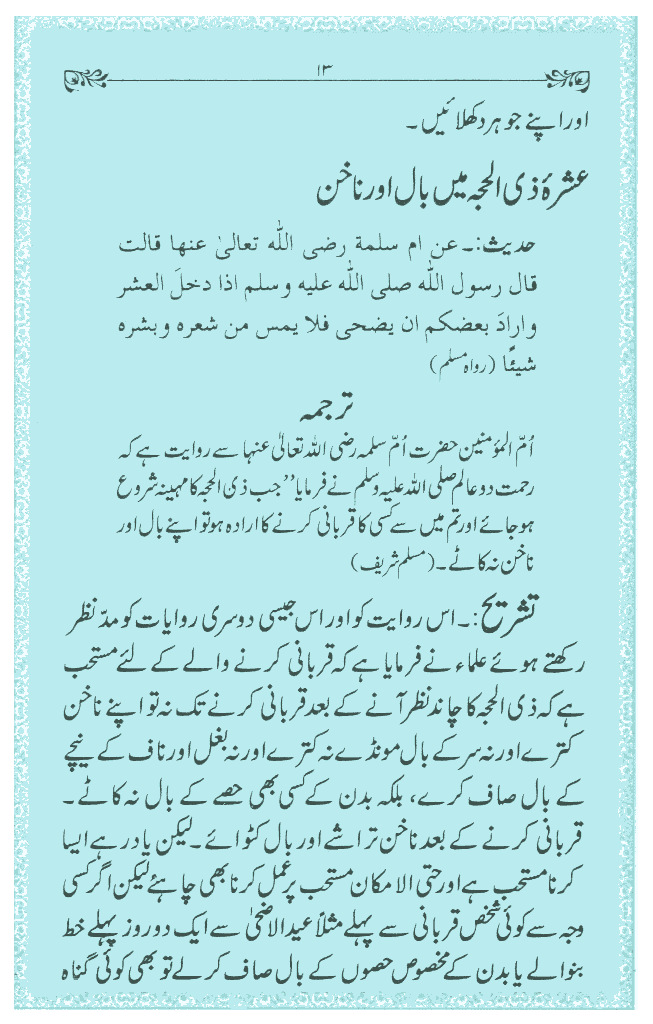 ۱۳
اور اپنے جوہر دکھلائیں۔
عشرۂ ذی الحجہ میں بال اور ناخن
حدیث:۔ عن ام سلمة رضی اللّٰه تعالیٰ عنها قالت
قال رسول اللّٰه صلی اللّٰه علیه وسلم اذا دخلَ العشر
وارادَ بعضکم ان یضحی فلا یمس من شعره وبشره
شیئًا (رواہ مسلم)
ترجمہ
اُمّ المؤمنین حضرت اُمّ سلمہ رضی اللہ تعالیٰ عنہا سے روایت ہے کہ
رحمت دو عالم صلی اللہ علیہ وسلم نے فرمایا ’’جب ذی الحجہ کا مہینہ شروع
ہو جائے اور تم میں سے کسی کا قربانی کرنے کا ارادہ ہو تو اپنے بال اور
ناخن نہ کاٹے۔ (مسلم شریف)
تشریح:۔ اس روایت کو اور اس جیسی دوسری روایات کو مدّ نظر
رکھتے ہوئے علماء نے فرمایا ہے کہ قربانی کرنے والے کے لئے مستحب
ہے کہ ذی الحجہ کا چاند نظر آنے کے بعد قربانی کرنے تک نہ تو اپنے ناخن
کترے اور نہ سر کے بال مونڈے نہ کترے اور نہ بغل اور ناف کے نیچے
کے بال صاف کرے، بلکہ بدن کے کسی بھی حصے کے بال نہ کاٹے۔
قربانی کرنے کے بعد ناخن تراشے اور بال کٹوائے۔ لیکن یاد رہے ایسا
کرنا مستحب ہے اور حتی الامکان مستحب پر عمل کرنا بھی چاہئے لیکن اگر کسی
وجہ سے کوئی شخص قربانی سے پہلے مثلاً عید الاضحیٰ سے ایک دو روز پہلے خط
بنوالے یا بدن کے مخصوص حصوں کے بال صاف کرلے تو بھی کوئی گناہ